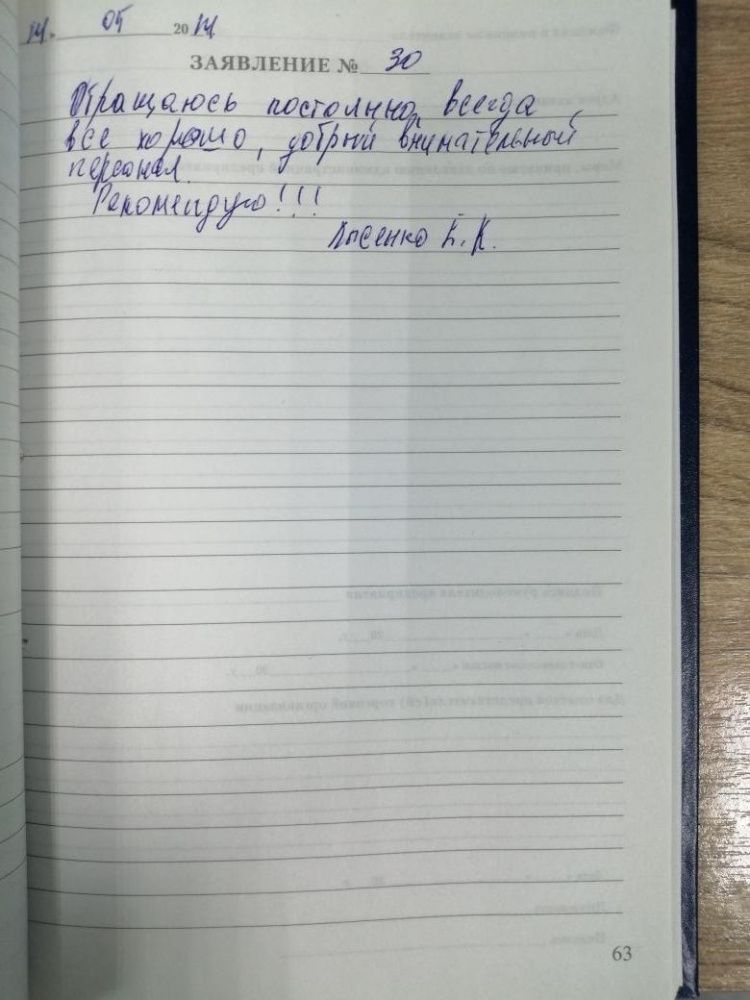 14 » 05 2014
ЗАЯВЛЕНИЕ № 30
Обращаюсь постоянно, всегда
все хорошо, добрый внимательный
персонал.
Рекомендую!!!
Лысенко Е. К.
63